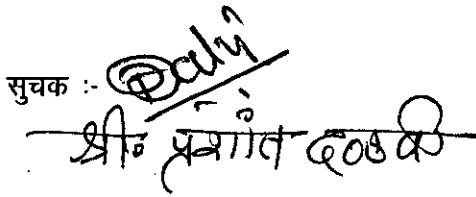 सुचक :-
श्री. प्रशांत दळवी